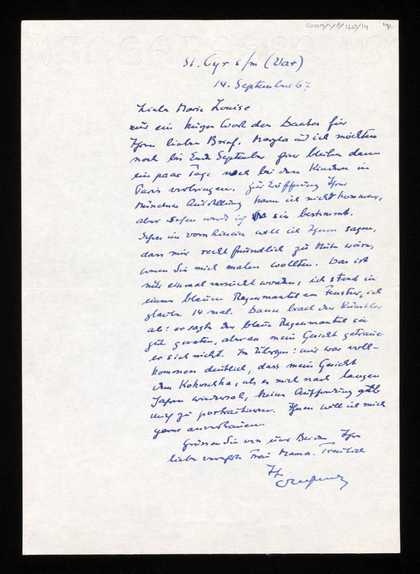 St. Cyr s/m (Var)
14. September 67
Liebe Marie Louise
nur ein kurzes Wort des Dankes für
Ihren lieben Brief. und ich möchten
noch bis Ende September hier bleiben dann
ein paar Tage noch bei den Kindern in
Paris verbringen. Zur Eröffnung Ihrer
Münchner Ausstellung kann ich nicht kommen,
aber sehen werde ich sie bestimmt.
Schon im vornhinein will ich Ihnen sagen,
dass mir recht feierlich zu Mute wäre,
wenn Sie mich malen wollten. Das ist
mir einmal versucht worden, ich stand in
einem blauen Regenmantel am Fenster, ich
glaube 14 mal. Dann brach der Künstler
ab: er sagte der blaue Regenmantel sei
gut geraten, aber an mein Gesicht getraue
er sich nicht. Im Übrigen: mir war voll-
kommen deutlich, dass mein Gesicht
dem Kokoschka, als er mich nach langen
Jahren wiedersah, keine Aufforderung gab
mich zu porträtieren. Ihnen will ich mich
gerne anvertrauen.
Grüssen Sie von uns Beiden Ihre
liebe verehrte Frau Mama. Treulich
Ihr